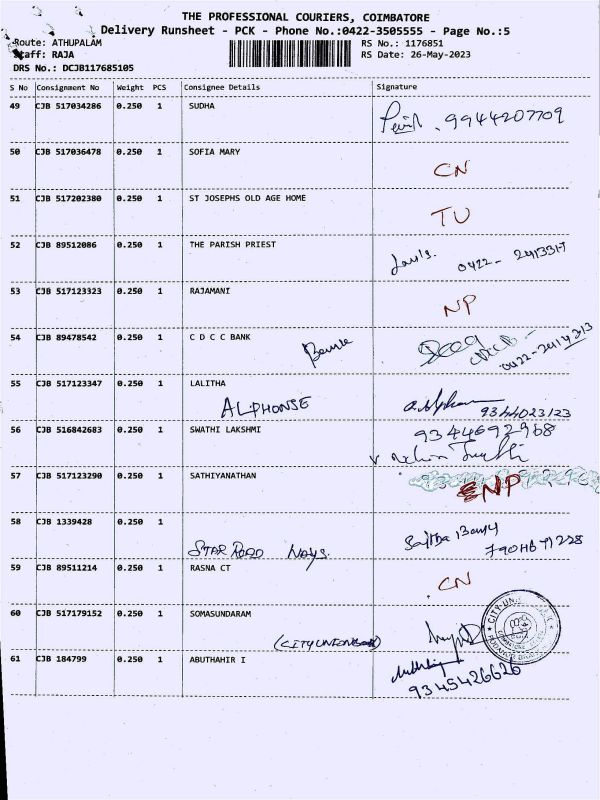 THE PROFESSIONAL COURIERS, COIMBATORE
Delivery Runsheet - PCK - Phone No.:0422-3505555 - Page No.:5
Route: ATHUPALAM
RS No.: 1176851
Staff: RAJA
RS Date: 26-May-2023
DRS No.: DCJB117685105
S No Consignment No Weight PCS Consignee Details Signature
49 CJB 517034286 0.250 1 SUDHA
9944207709
50 CJB 517036478 0.250 1 SOFIA MARY
CN
51 CJB 517202380 0.250 1 ST JOSEPHS OLD AGE HOME
TU
52 CJB 89512086 0.250 1 THE PARISH PRIEST
0422-
53 CJB 517123323 0.250 1 RAJAMANI
NP
54 CJB 89478542 0.250 1 C D C C BANK
55 CJB 517123347 0.250 1 LALITHA
ALPHONSE 9344023123
56 CJB 516842683 0.250 1 SWATHI LAKSHMI
9344692968
57 CJB 517123290 0.250 1 SATHIYANATHAN
NP
58 CJB 1339428 0.250 1
STAR ROAD
59 CJB 89511214 0.250 1 RASNA CT
CN
60 CJB 517179152 0.250 1 SOMASUNDARAM
61 CJB 184799 0.250 1 ABUTHAHIR I
9345426626